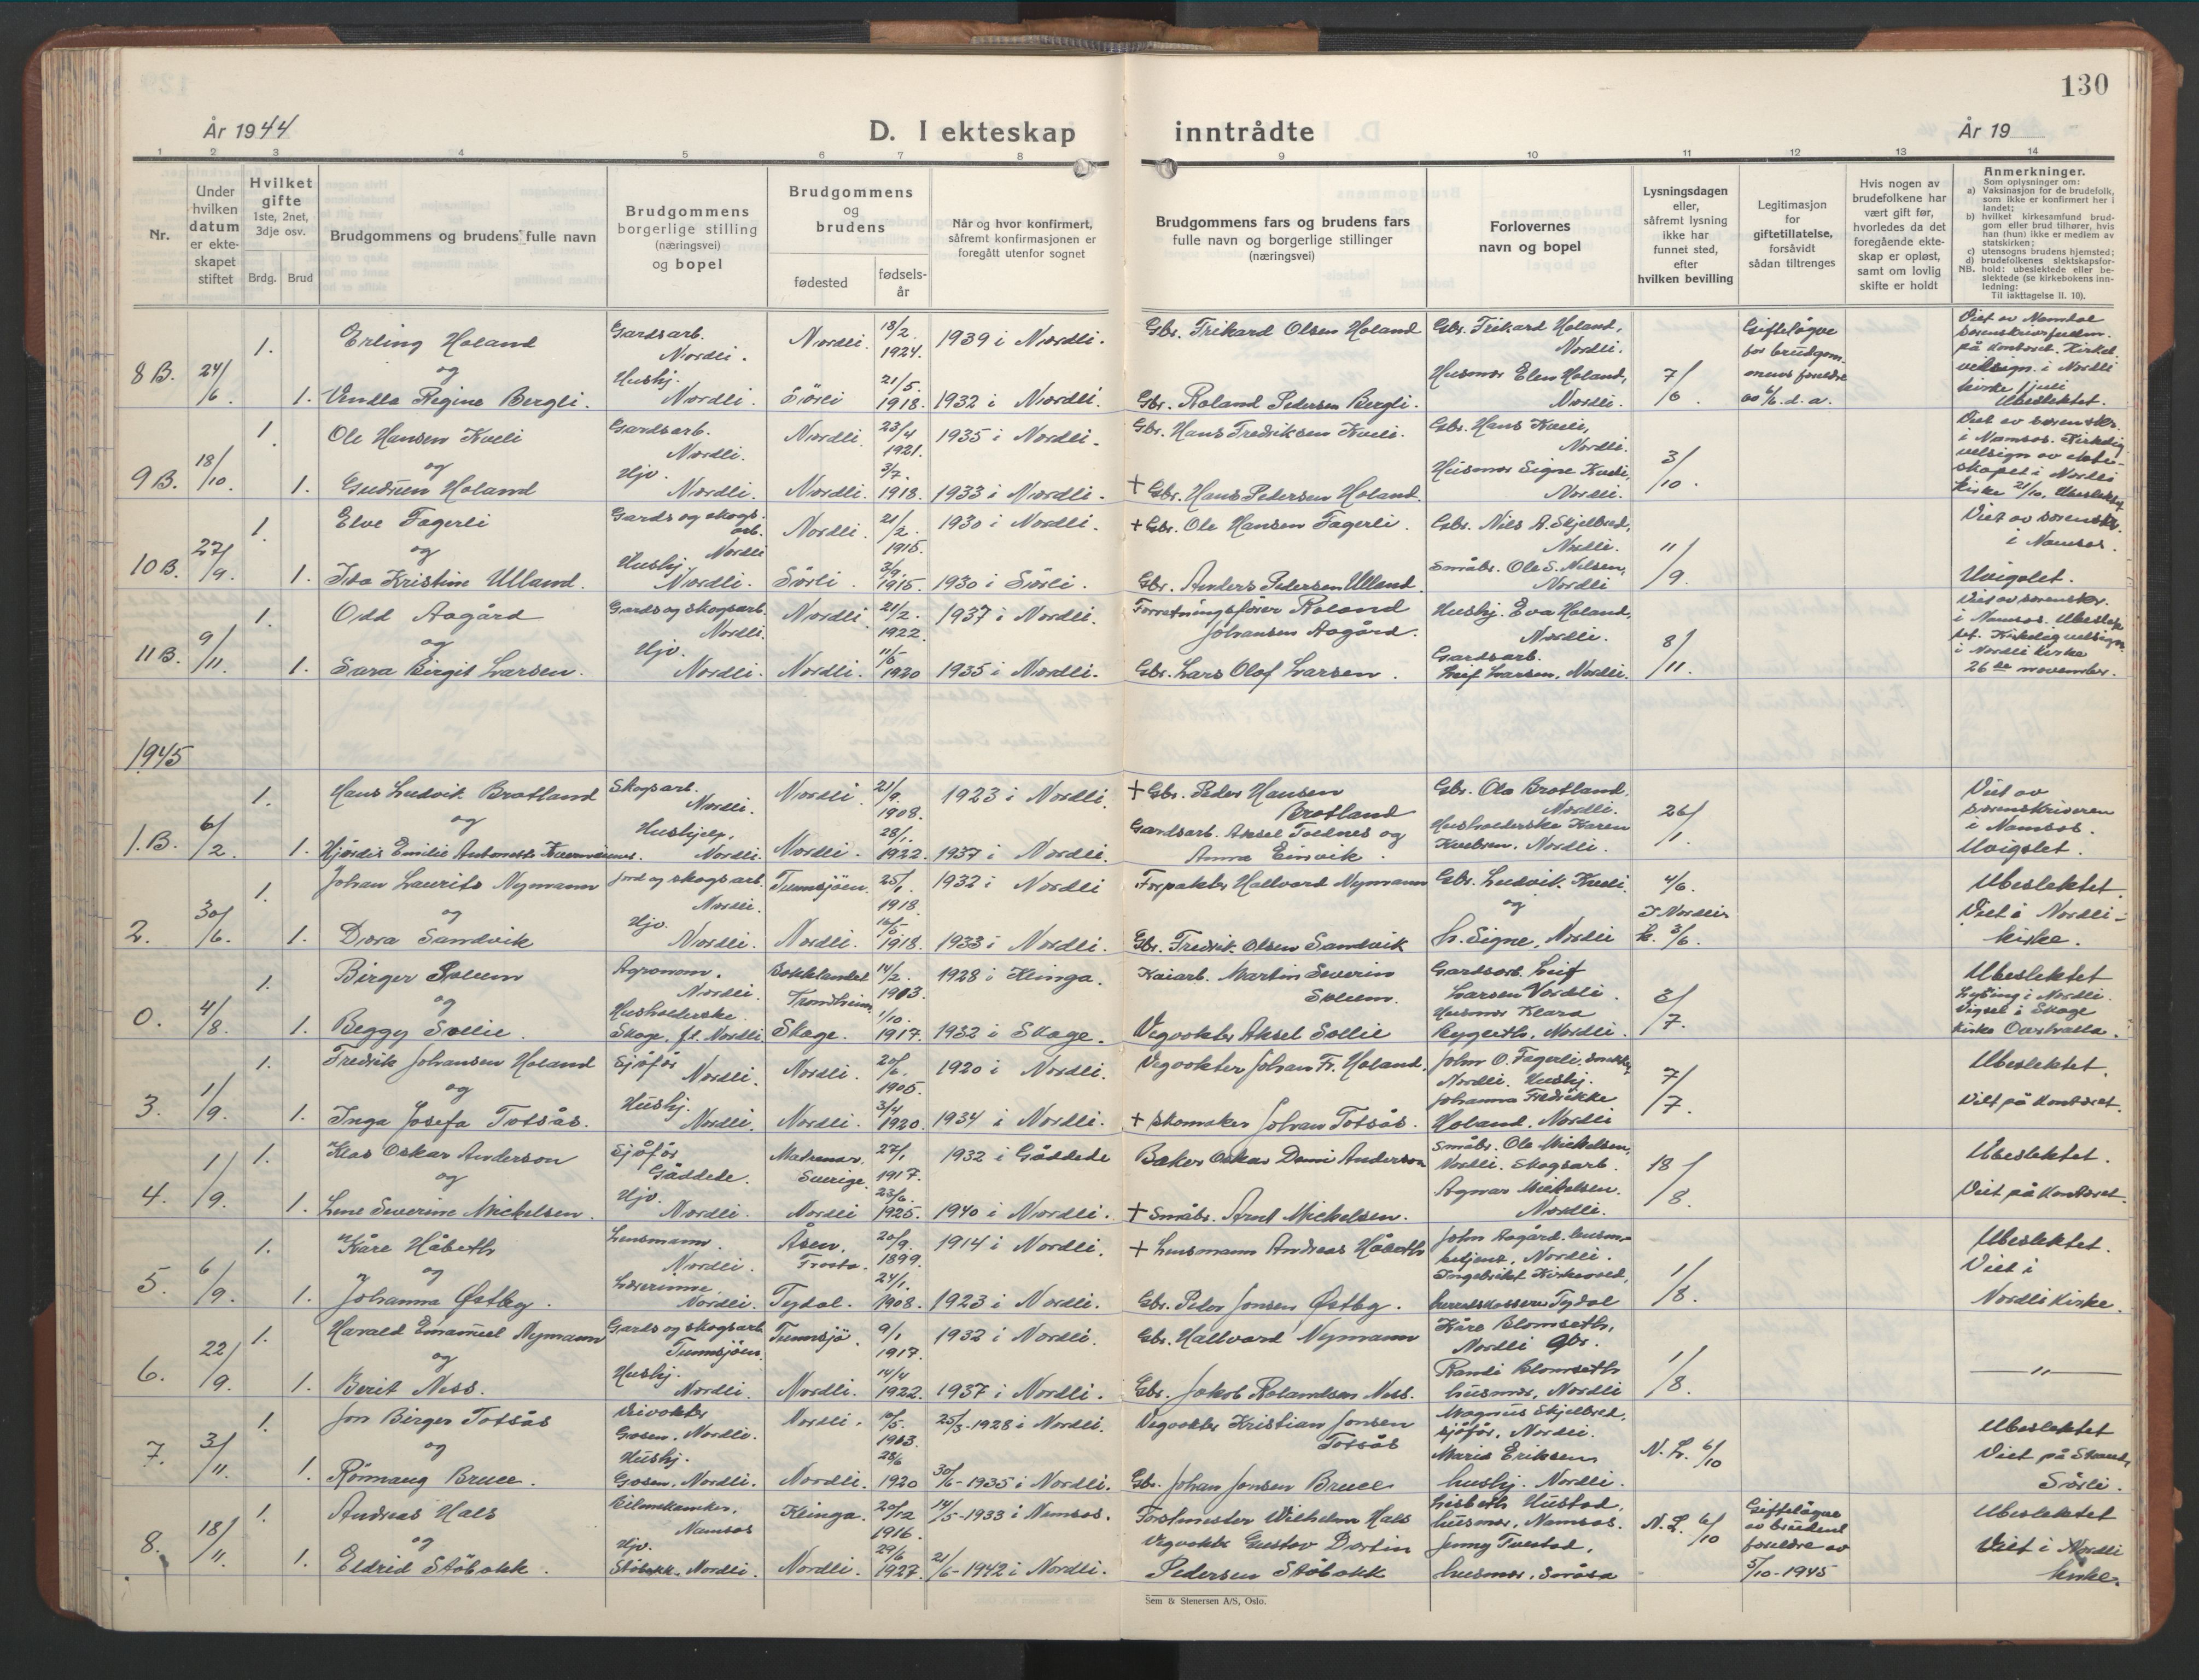 130
År 1944
D. I ekteskap inntrådte
År 19
1 2 3 4 5 6 7 8 9 10 11 12 13 14
Nr.
Under hvilken datum er ekteskapet stiftet
Hvilket gifte 1ste, 2net, 3dje osv.
Brdg. Brud
Brudgommens og brudens fulle navn
Brudgommens borgerlige stilling (næringsvei) og bopel
Brudgommens og brudens
fødested
fødsels-år
Når og hvor konfirmert, såfremt konfirmasjonen er foregått utenfor sognet
Brudgommens fars og brudens fars fulle navn og borgerlige stillinger (næringsvei)
Forlovernes navn og bopel
Lysningsdagen eller, såfremt lysning ikke har funnet sted, efter hvilken bevilling
Legitimasjon for giftetillatelse, forsåvidt sådan tiltrenges
Hvis nogen av brudefolkene har vært gift før, hvorledes da det foregående ekteskap er opløst, samt om lovlig skifte er holdt
Anmerkninger.
Som oplysninger om:
a) Vaksinasjon for de brudefolk, som ikke er konfirmert her i landet;
b) hvilket kirkesamfund brudgom eller brud tilhører, hvis han (hun) ikke er medlem av statskirken;
c) utensogns brudens hjemsted;
d) brudefolkenes slektskapsforhold: ubeslektede eller beslektede (se kirkebokens innledning:
NB.
Til iakttagelse II. 10).
8 B. 24/6 1. Erling Holand Gardsarb. Nordli. Nordli 18/2 1924. 1939 i Nordli. Gbr. Trikard Olsen Holand Gbr. Trikard Holand, Nordli. 7/6. Gifteløgve for brudgommens foreldre av 6/6. d. a. Viet av Namdal sorenskriverembm. på kontoret. Kirkel. velsign. i Nordli kirke 1 juli Ubeslektet.
og
1. Vendla Regine Bergli. Hushj. Nordli. Sörli 21/5. 1918. 1932 i Nordli. Gbr. Roland Pedersen Bergli. Husmor Elen Holand, Nordli.
9 B. 18/10. 1. Ole Hansen Kveli Gardsarb. Nordli. Nordli 23/4 1921. 1935 i Nordli. Gbr. Hans Fredriksen Kveli. Gbr. Hans Kveli, Nordli. 3/10. Viet av sorenskr. i Namsos. Kirkelig velsign av ekteskapet i Nordli kirke 21/10. Ubeslektet
og
1. Gudrun Holand Hjv. Nordli. Nordli. 3/7. 1918. 1933 i Nordli. + Gbr. Hans Pedersen Holand Husmor Signe Kveli, Nordli.
10 B. 27/9. 1. Elve Fagerli Gards og skogsarb. Nordli Nordli. 21/2. 1915. 1930 i Nordli. + Gbr. Ole Hansen Fagerli. Gbr. Nils A. Skjelbred, Nordli. 11/9. Viet av sorenskr. i Namsos. Uvigslet.
og
1. Ida Kristine Ulland. Hushj. Nordli. Sörli. 3/9. 1915. 1930 i Sörli. Gbr. Anders Pedersen Ulland Småbr. Ole S. Nilsen, Nordli
11 B. 9/11. 1. Odd Aagård Gards og skogsarb. Nordli. Nordli 21/2. 1922. 1937 i Nordli. Forretningsfører Roland Johansen Aagård. Hushj. Eva Holand, Nordli. 8/11. Viet av sorenskr. i Namsos. Ubeslektet. Kirkeleg velsigna i Nordli kirke 26de november.
og
1. Sara Birgit Larsen. Hjv. Nordli. Nordli. 11/5 1920 1935 i Nordli. Gbr. Lars Olof Larsen. Gardsarb. Leif Larsen, Nordli.
1945
1.B. 6/2. 1. Hans Ludvik Brotland Skogsarb. Nordli. Nordli. 21/9. 1908. 1923 i Nordli. + Gbr. Peder Hansen Brotland Gbr. Ola Brotland, Nordli. 26/1. Viet av sorenskriveren i Namsos. Uvigslet.
og
1. Hjördis Emilie Antonette Hushjelp, Nordli. Nordli. 28/1. 1922. 1937 i Nordli. Gardsarb. Aksel Toednes og Anna Einvik. Husholderske Karen, Nordli.
2. 30/6. 1. Johan Laurits Nymann Jord og skogsarb. Nordli. Tunnsjöen. 25/1. 1918. 1932 i Nordli Forpakter Hallvard Nymann Gbr. Ludvik Kveli. 4/6. I Nordli k. 3/6. Ubeslektet. Viet i Nordli kirke.
og
1. Dora Sandvik Hjv. Nordli. Nordli. 16/5 1918. 1933 i Nordli. Gbr. Fredrik Olsen Sandvik og fr. Signe, Nordli
0. 4/8. 1. Birger Soleem Agronom. Nordli. Bakklandet Trondheim 14/2. 1903. 1928 i Klinga. Kaiarb. Martin Severin Soleem. Gardsarb. Leif Larsen Nordli. 3/7. Ubeslektet Lysing i Nordli. Vigsel i Skage kirke Overhalla.
og
1. Beggy Sollie. Husholderske Skage. f.t. Nordli Skage. 1/10. 1917. 1932 i Skage. Vegvokter Aksel Sollie Husmor Klara, Nordli.
3. 1/9. 1. Fredrik Johansen Holand Sjåfør Nordli. Nordli. 20/6. 1905. 1920 i Nordli. Vegvokter Johan Fr. Holand. John O. Fagerli, snekker, Nordli. Hushj. 7/7. Ubeslektet. Viet på kontoret.
og
1. Inga Josefa Totsås. Hushj. Nordli. Nordli. 3/4 1920. 1934 i Nordli. + Skomaker Johan Totsås. Johanna Fredrikke Holand. Nordli
4. 1/9. 1. Klas Oskar Anderson Sjåfør Gäddede. Sverige. 27/1. 1917. 1932 i Gäddede Baker Oskar Anderson Småbr. Ole Mickelsen, Nordli. Skogsarb. 18/8. Ubeslektet. Viet på kontoret.
og
1. Lene Severine Mickelsen. Hjv. Nordli. Nordli 23/6. 1925. 1940 i Nordli. + Småbr. Arnt Mickelsen. Agnar Mickelsen. Nordli.
5. 6/9. 1. Kåre Håbeth Lensmann. Nordli. Åsen, Frosta. 20/9. 1899. 1914 i Nordli. + Lensmann Andreas Håbeth John Aagård. lensm. betjent, Nordli. 1/8. Ubeslektet. Viet i Nordli kirke.
og
1. Johanna Østby. Lærerinne, Nordli. Tydal. 24/1. 1908. 1923 i Nordli. Gbr. Peder Jonsen Østby. Ingebrikt Kirkvold, herredskasserer Tydal
6. 22/9. 1. Harald Emanuel Nymann Gards og skogsarb. Tunnsjöen. Tunnsjö. 9/1 1917. 1932 i Nordli. Gbr. Hallvard Nymann Kåre Blomseth, Nordli Gbr. 1/8. — " —
og
1. Berit Ness. Hushj. Nordli. Nordli. 14/4 1922. 1937 i Nordli. Gbr. Jakob Rolandsen Ness. Randi Blomseth husmor, Nordli
7. 3/11. 1. Jon Birger Totsås Veivokter Gåsen, Nordli. Nordli. 10/5. 1903. 25/3-1928 i Nordli. Vegvokter Kristian Jonsen Totsås Magnus Skjelbred, sjåfør, Nordli. N. L. 6/10 Ubeslektet Viet på Strand, Sörli.
og
1. Rönnaug Bruce. Hushj. Gåsen, Nordli. Nordli. 28/6 1920 30/6-1935 i Nordli. Gbr. Johan Jonsen Bruce Maria Eriksen hushj. Nordli.
8. 18/11. 1. Andreas Hals Namsos Klinga. 20/12 1916. 14/5-1933 i Namsos. Forstmester Wilhelm Hals Lisbeth Hustad, husmor, Namsos. N. L. 6/10 Giftelögve av brudens foreldre av 5/10-1945 Ubeslektet Viet i Nordli kirke.
og
1. Eldrid Stöbakk. Hjv. Stöbakk. Nordli. Nordli. 29/6 1927. 21/6-1942 i Nordli. Vegvokter Gustav Dortin Pedersen Stöbakk Jenny Tvestad, husmor, Snåsa
Sem & Stenersen A/S, Oslo.